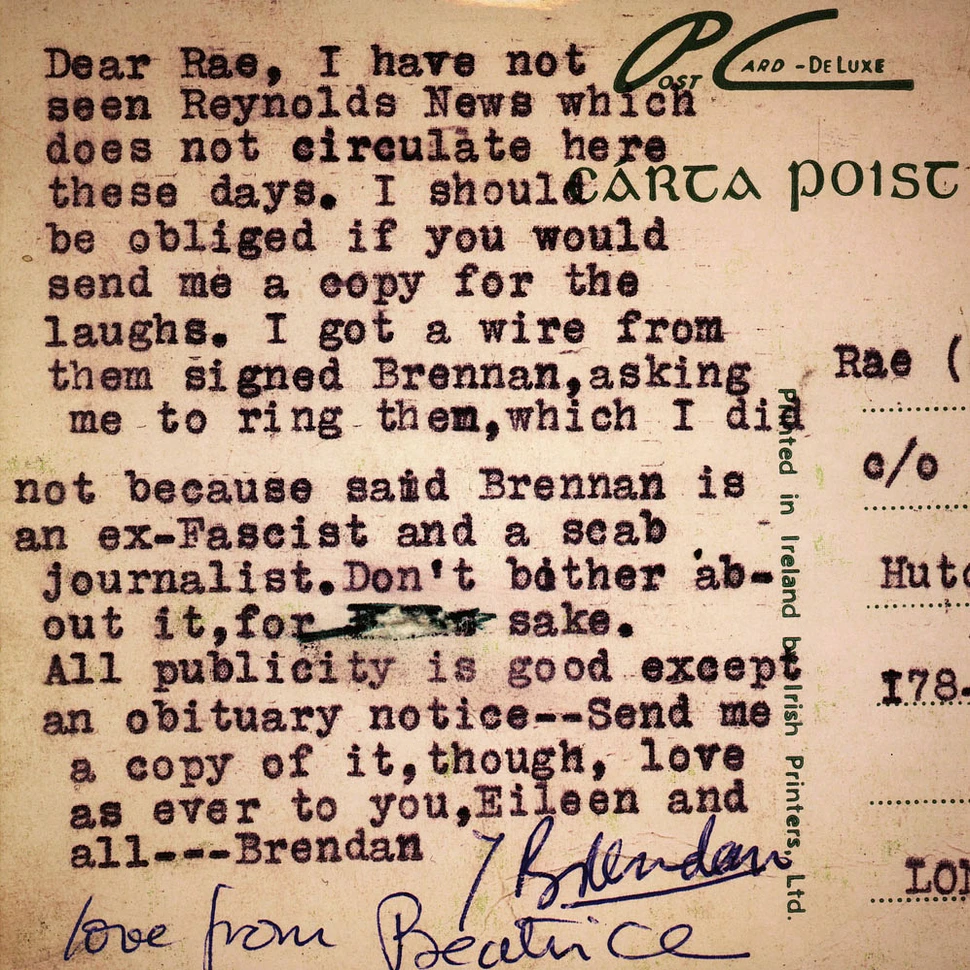 Dear Rae, I have not
seen Reynolds News which
does not circulate here
these days. I should
be obliged if you would
send me a copy for the
laughs. I got a wire from
them signed Brennan,asking
me to ring them,which I did
not because said Brennan is
an ex-Fascist and a scab
journalist.Don't bother ab-
out it,for sake.
All publicity is good except
an obituary notice--Send me
a copy of it,though, love
as ever to you,Eileen and
all---Brendan
Brendan
love from Beatrice
POST CARD-DE LUXE
CÁRTA POIST
Printed in Ireland by Irish Printers, Ltd.
Rae (
c/o
Hutc
I78-
LON